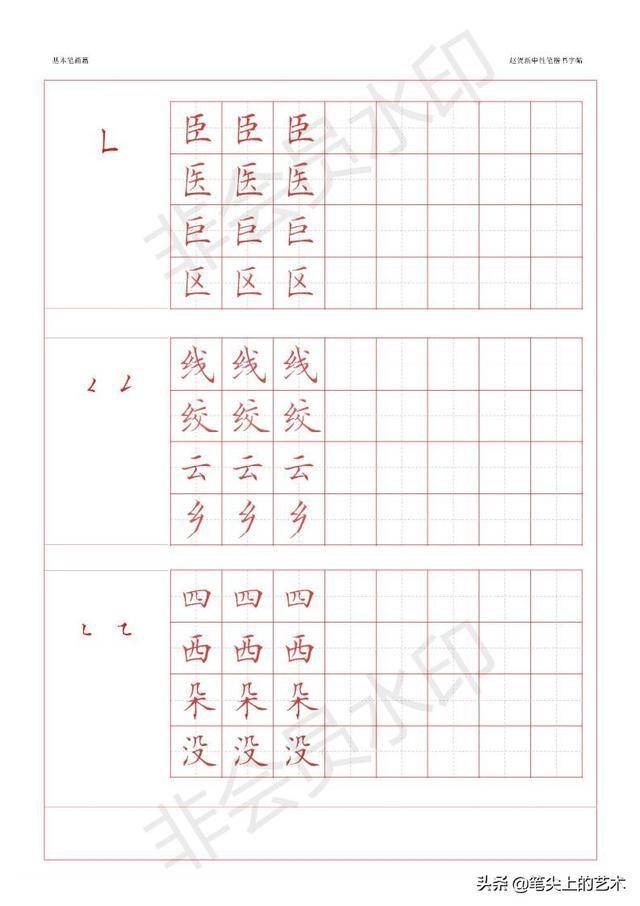 基本笔画篇
赵贺新中性笔楷书字帖
臣臣臣
医医医
巨巨巨
区区区
线线线
绞绞绞
云云云
乡乡乡
四四四
西西西
朵朵朵
没没没
非会员水印
非会员水印
头条 @笔尖上的艺术